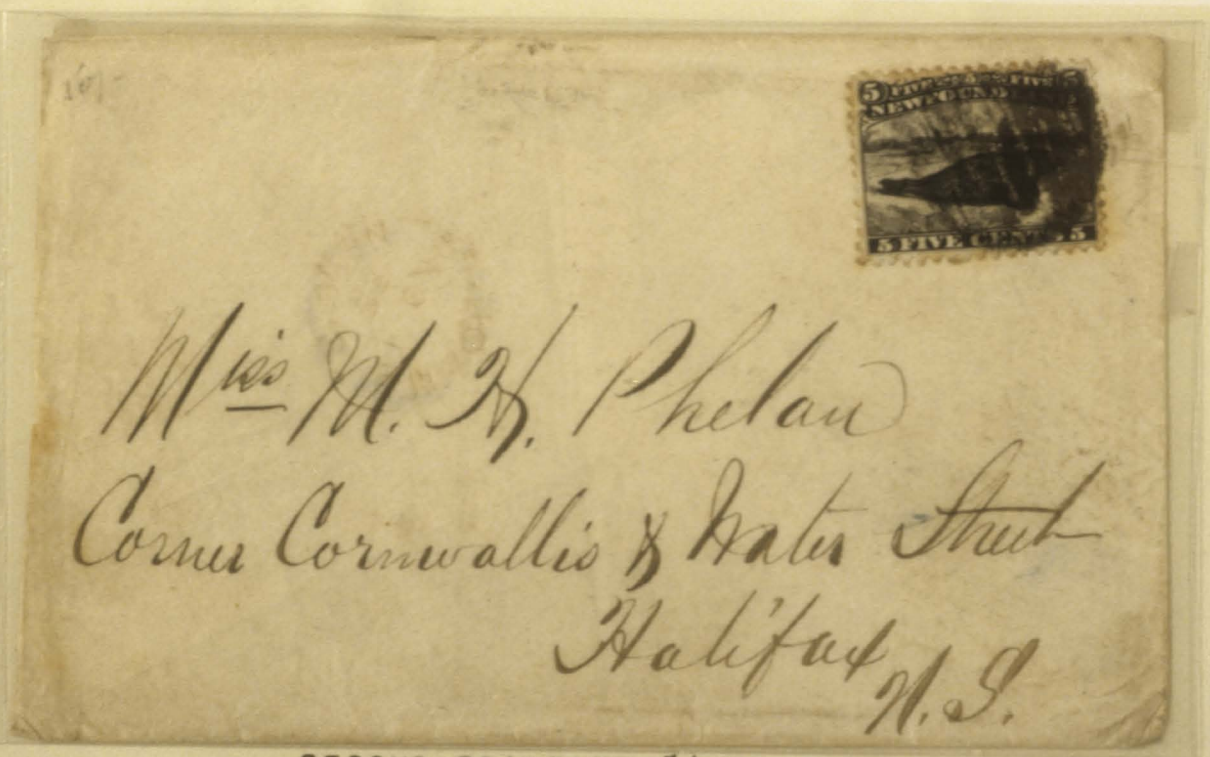 5 FIVE 5
5 FIVE CENTS 5
Miss M. H. Phelan
Corner Cornwallis & Water Street
Halifax
N.S.